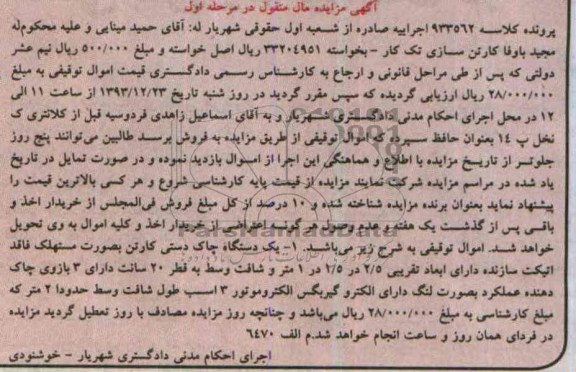 آگهی مزایده مال منقول در مرحله اول
پرونده کلاسه ۹۳۳۵۶۲ اجراییه صادره از شعبه اول حقوقی شهریار له: آقای حمید مینایی و علیه محکوم‌له
مجید باوفا کارتن سازی تک کار - بخواسته ۳۳۲۰۴۹۵۱ ریال اصل خواسته و مبلغ ۵۰۰/۰۰۰ ریال نیم عشر
دولتی که پس از طی مراحل قانونی و ارجاع به کارشناس رسمی دادگستری قیمت اموال توقیفی به مبلغ
۲۸/۰۰۰/۰۰۰ ریال ارزیابی گردیده که سپس مقرر گردید در روز شنبه تاریخ ۱۳۹۳/۱۲/۲۳ از ساعت ۱۱ الی
۱۲ در محل اجرای احکام مدنی دادگستری شهریار و به آقای اسماعیل زاهدی فردوسیه قبل از کلانتری ک
نخل پ ۱۴ بعنوان حافظ سپرده که اموال توقیفی از طریق مزایده به فروش برسد طالبین می‌توانند پنج روز
جلوتر از تاریخ مزایده با اطلاع و هماهنگی این اجرا از اموال بازدید نموده و در صورت تمایل در تاریخ
یاد شده در مراسم مزایده شرکت نمایند مزایده از قیمت پایه کارشناسی شروع و هر کسی بالاترین قیمت را
پیشنهاد نماید بعنوان برنده مزایده شناخته شده و ۱۰ درصد از کل مبلغ فروش فی‌المجلس از خریدار اخذ و
باقی پس از گذشت یک هفته و عدم وصول هر گونه اعتراض از خریدار اخذ و کلیه اموال به وی تحویل
خواهد شد. اموال توقیفی به شرح زیر می‌باشد. ۱- یک دستگاه چاک دستی کارتن بصورت مستهلک فاقد
اتیکت سازنده دارای ابعاد تقریبی ۲/۵ در ۱/۵ در ۱ متر و شافت وسط به قطر ۲۰ سانت دارای ۳ بازوی چاک
دهنده عملکرد بصورت لنگ دارای الکترو گیربگس الکتروموتور ۳ اسب طول شافت وسط حدودا ۲ متر که
مبلغ کارشناسی به مبلغ ۲۸/۰۰۰/۰۰۰ ریال می‌باشد و چنانچه روز مزایده مصادف با روز تعطیل گردید مزایده
در فردای همان روز و ساعت انجام خواهد شد.م الف ۶۴۷۰
اجرای احکام مدنی دادگستری شهریار - خوشنودی